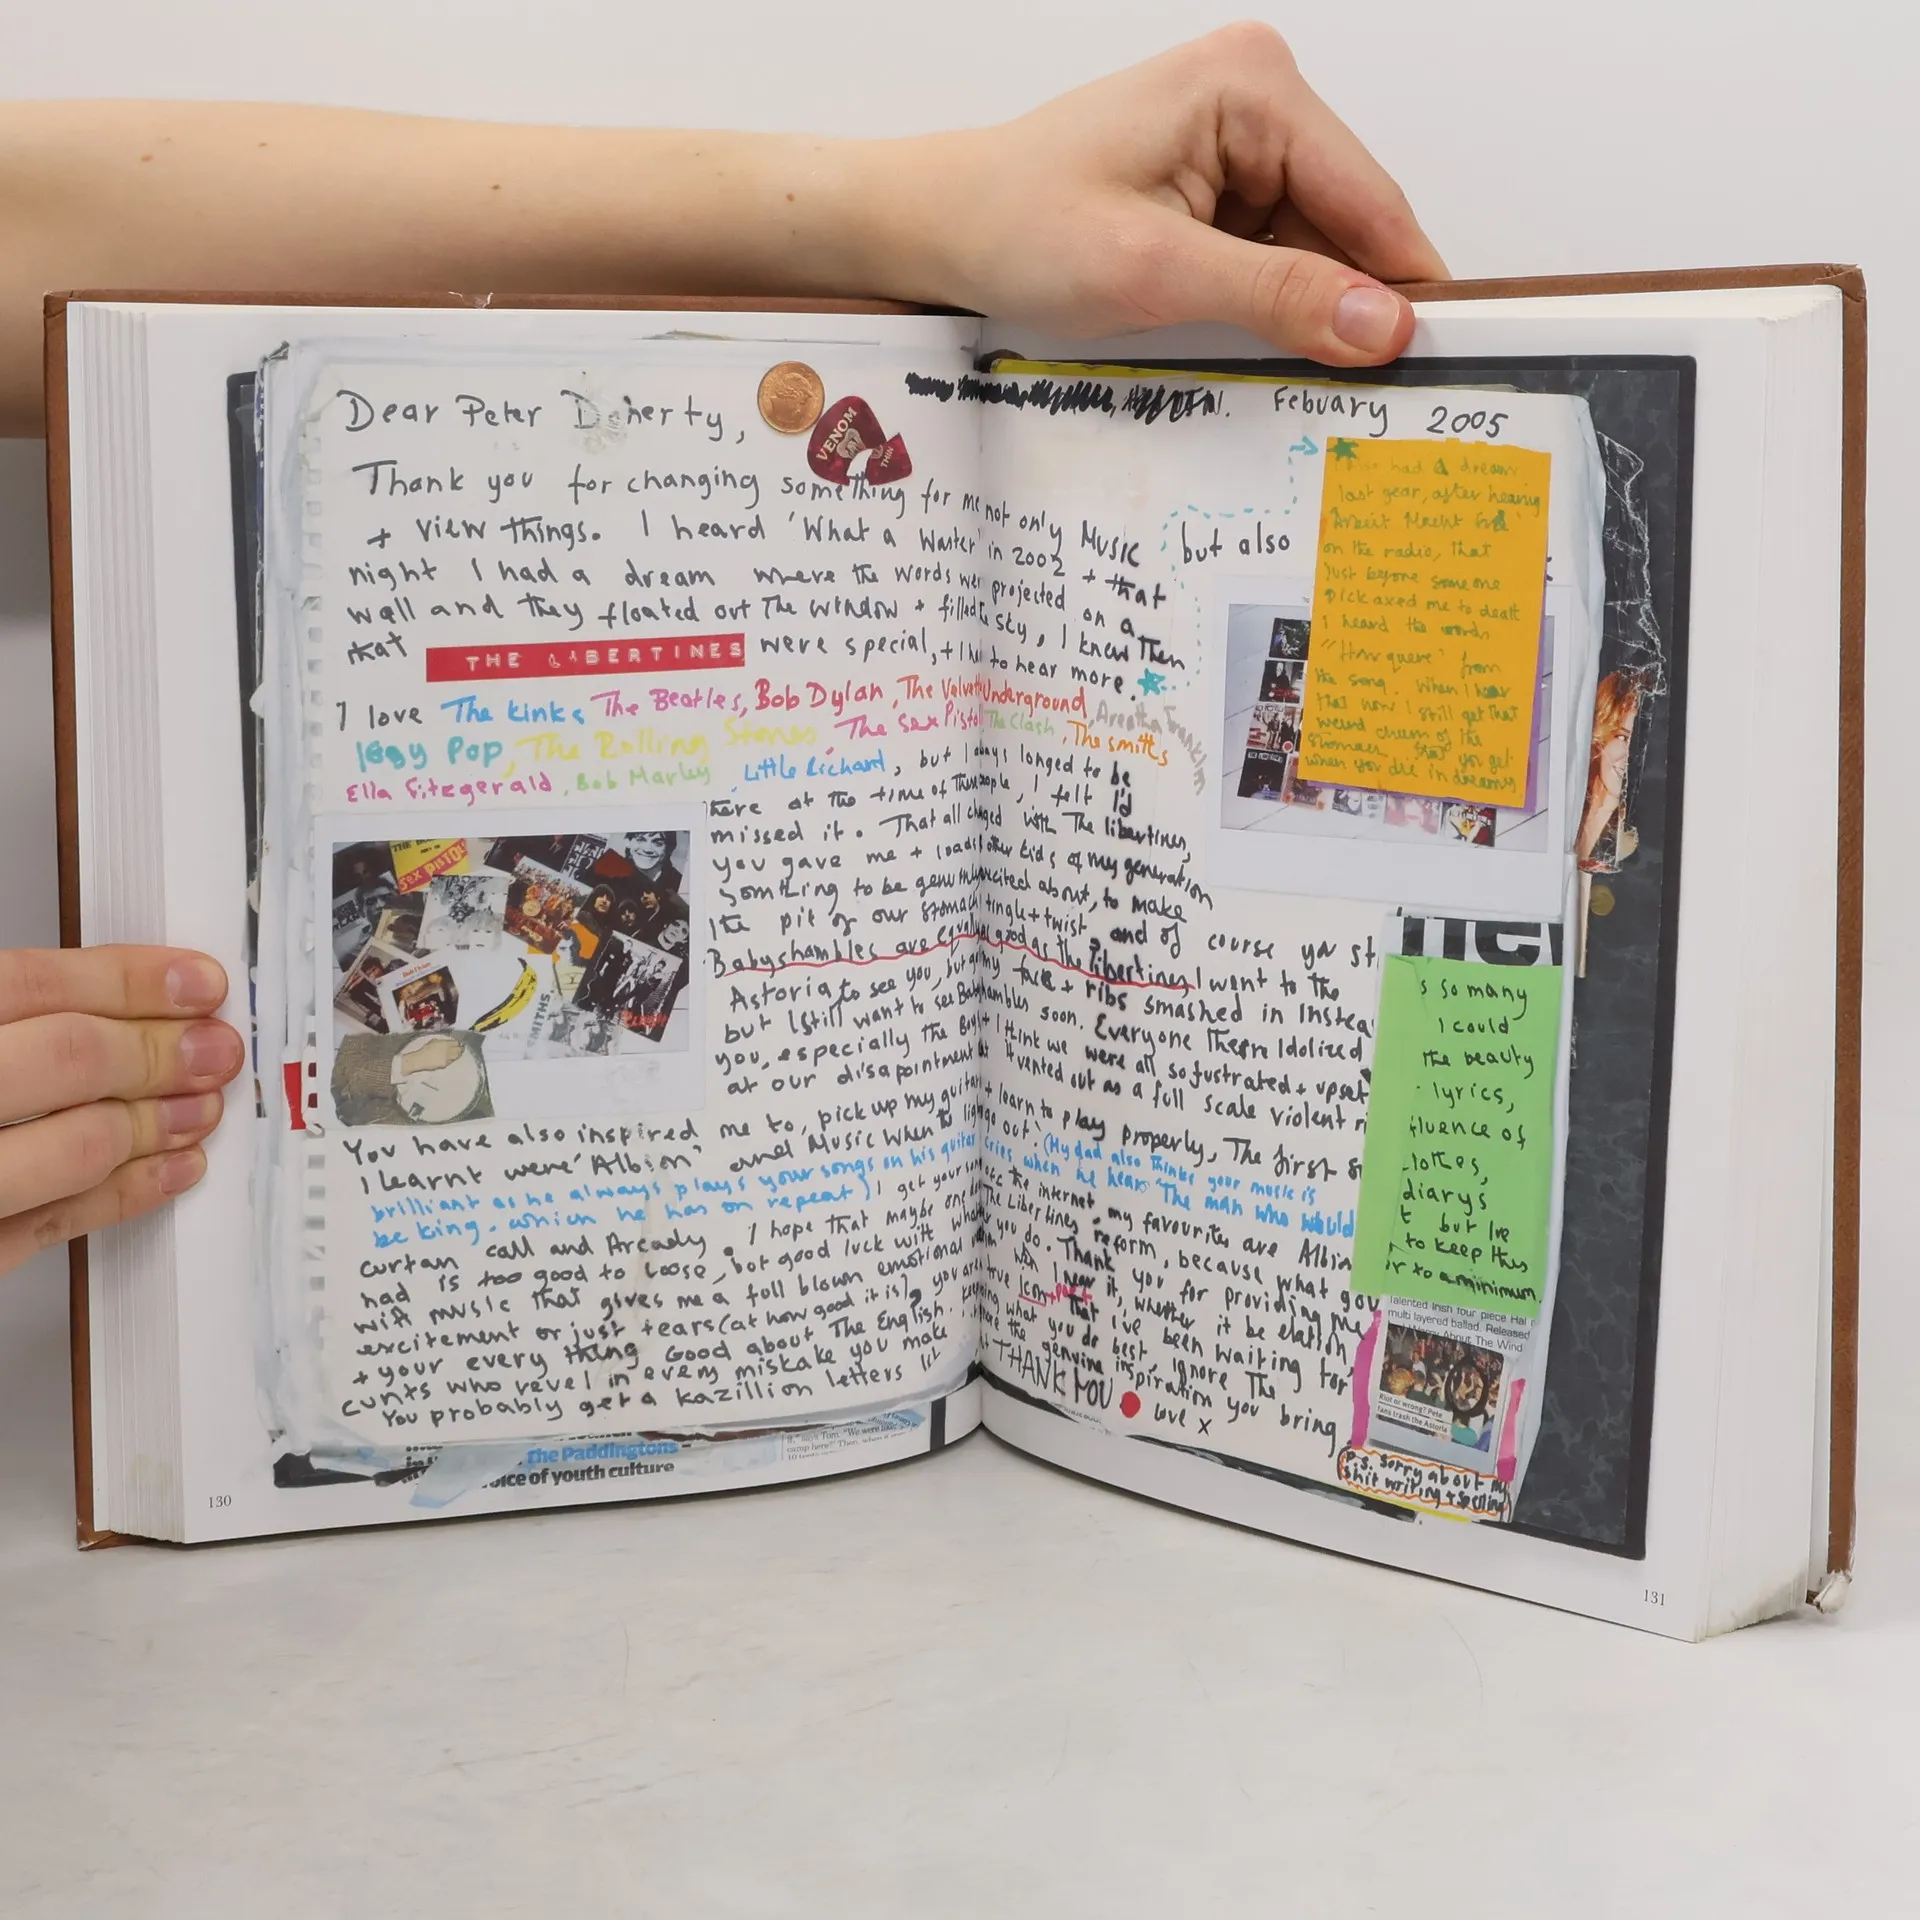 Febuary 2005
Dear Peter Doherty,
VENOM
THIN
Thank you for changing something for me not only Music but also
+ view things. I heard 'What a Waster' in 2002 + that
night I had a dream where the words were projected on a
wall and they floated out the window + filled the sky, I knew then
that THE LIBERTINES were special, + I had to hear more.
I love The Kinks The Beatles, Bob Dylan, The Velvet Underground, Areatha Franklin
Iggy Pop, The Rolling Stones, The Sex Pistols The Clash, The Smiths
Ella Fitzgerald, Bob Marley, Little Richard, but I always longed to be
there at the time of these people, I felt I'd
missed it. That all changed with The libertines,
you gave me + loads other kids of my generation
somthing to be genuinly excited about, to make
the pit of our stomach tingle + twist, and of course you st
Babyshambles are equally as good as the libertines, I went to the
Astoria to see you, but got my face + ribs smashed in instea
but I still want to see Babyshambles soon. Everyone there Idolized
you, especially the Boys + I think we were all so fustrated + upset
at our disapointment it vented out as a full scale violent ri
You have also inspired me to, pick up my guitar + learn to play properly, The first s
I learnt were 'Albion' and Music When the lights go out'. (My dad also thinks your music is
brilliant as he always plays your songs on his guitar cries when he hears 'The man who would
be king' which he has on repeat) I get your songs off the internet, my favourites are Albion
curtan call and Arcady. I hope that maybe one day The Libertines reform, because what you
had is too good to loose, but good luck with whatever you do. Thank you for providing me
with music that gives me a full blown emotional when I hear it, whether it be elation,
excitement or just tears (at how good it is), you are true Icon + poet that I've been waiting for,
+ your every thing Good about The English. Keep doing what you do best, ignore The
cunts who revel in every mistake you make the genuine inspiration you bring
You probably get a kazillion letters THANK YOU love x
I also had a dream
last year, after hearing
'Arbeit Macht Frei'
on the radio, that
just before someone
pick axed me to death
I heard the words
from
the song. When I hear
that now I still get that
weird churn of the
stomach that you get
when you die in dreams
s so many
I could
the beauty
lyrics,
fluence of
lothes,
diarys
t but Ive
to keep this
r to a minimum.
Talented Irish four piece Hal
multi layered ballad. Released
About The Wind
Riot or wrong? Pete
fans trash the Astoria
P.S. Sorry about my
shit writing + spelling
SEX PISTOLS
SMITHS
The Paddingtons
oice of youth culture
130
131